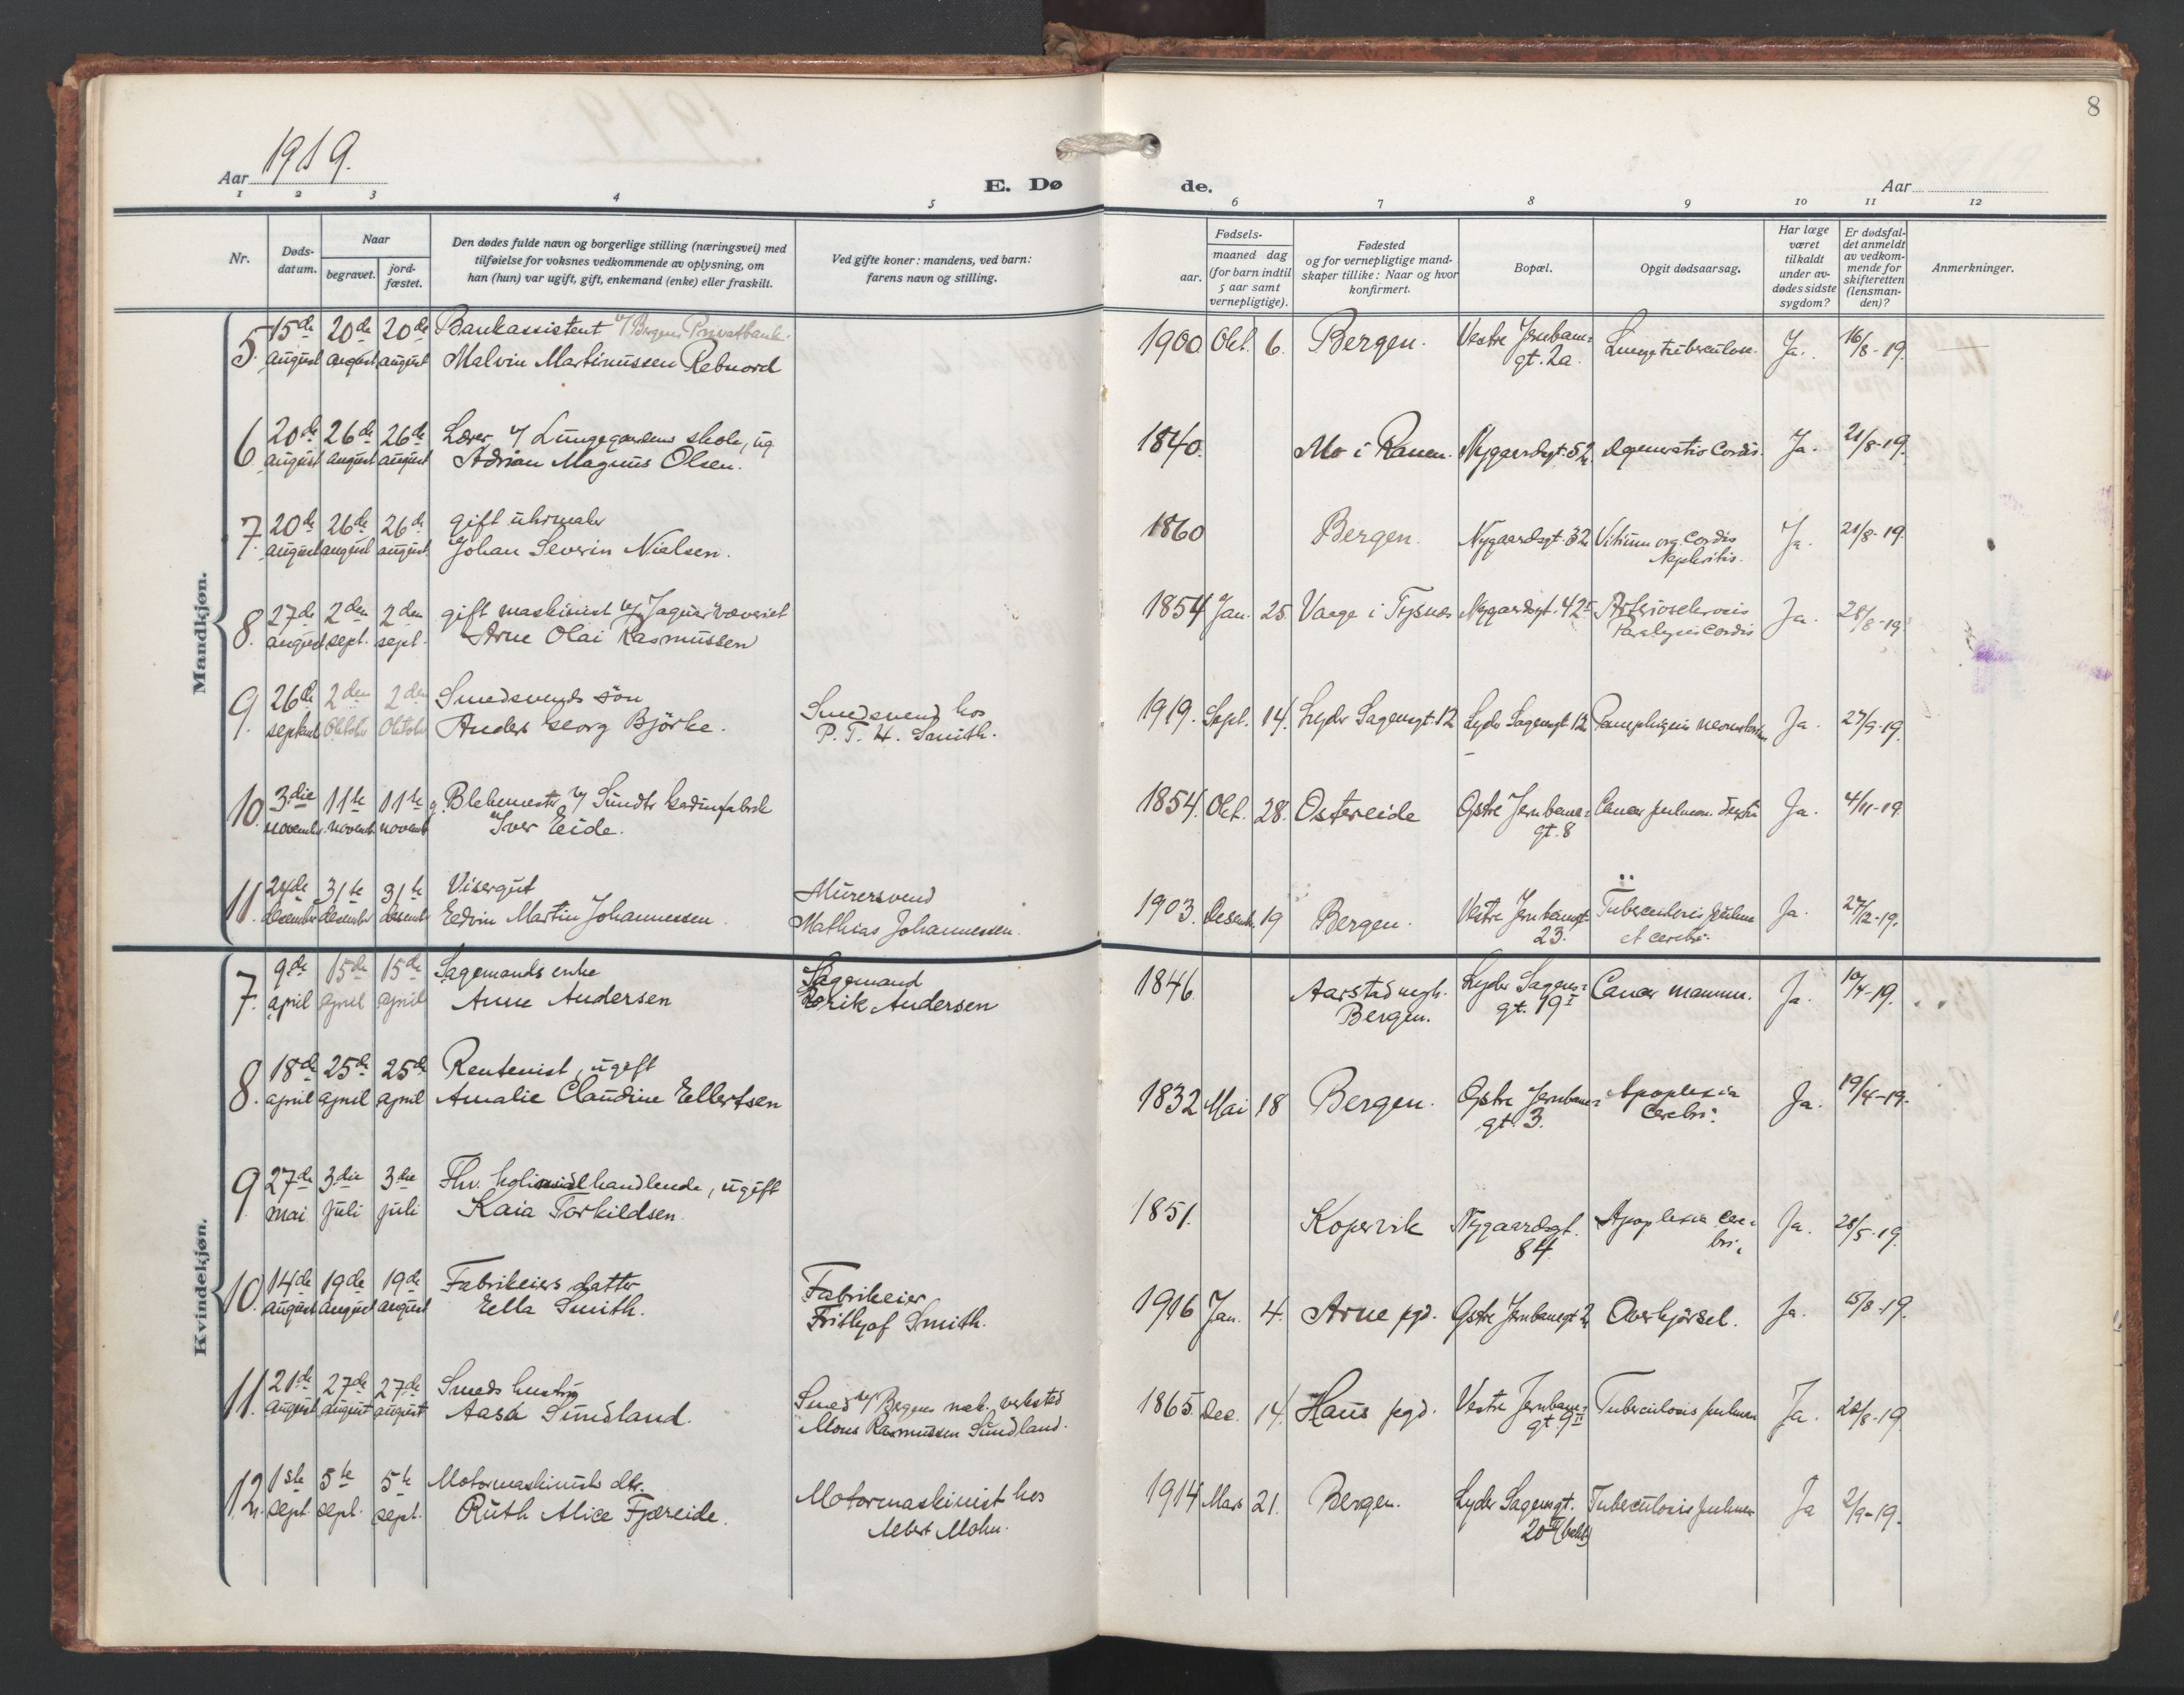 8
Aar 1919.
E. Dø de.
Aar
1 2 3 4 5 6 7 8 9 10 11 12
Nr.
Døds-
datum.
Naar
begravet.
jord-
fæstet.
Den dødes fulde navn og borgerlige stilling (næringsvei) med
tilføielse for voksnes vedkommende av oplysning, om
han (hun) var ugift, gift, enkemand (enke) eller fraskilt.
Ved gifte koner: mandens, ved barn:
farens navn og stilling.
Fødsels-
aar.
maaned dag
(for barn indtil
5 aar samt
vernepligtige).
Fødested
og for vernepligtige mand-
skaper tillike: Naar og hvor
konfirmert.
Bopæl.
Opgit dødsaarsag.
Har læge
været
tilkaldt
under av-
dødes sidste
sygdom?
Er dødsfal-
det anmeldt
av vedkom-
mende for
skifteretten
(lensman-
den)?
Anmerkninger.
Mandkjøn.
5. 15de 20de 20de Bankassistent v/ Bergens Privatbank. 1900 Okt. 6. Bergen. Vestre Jernbane- Lungetuberculose. Ja. 16/8-19.
august august august Malvin Martinussen Rebnord gt. 2a.
6. 20de 26de 26de Lærer v/ Lungegaardens skole, ug 1840. Mo i Ranen. Nygaardsgt. 52 degeneratio Cordis. Ja. 21/8-19.
august august august Adrian Magnus Olsen.
7. 20de 26de 26de gift uhrmaker 1860 Bergen. Nygaardsgt. 32 Vitium org. Cordis Ja. 21/8-19.
august august august Johan Severin Nielsen. Nephritis.
8. 27de 2den 2den gift maskinist v/ "Jaquar"væveriet 1854 Jan. 25. Vaage i Tysnes Nygaardsgt. 42 Arteriosclerosis Ja. 28/8-19
august sept. sept. Arne Olai Rasmussen Paralysis Cordis
9. 26de 2den 2den Smedsvends søn Smedsvend hos 1919. Sept. 14. Lyder Sagensgt. 12 Lyder Sagensgt 12 Ja. 27/9-19.
septemb Oktober Oktober Anders Georg Björke. P. T. H. Smith.
10. 3die 11te 11te g. Blekemester v/ Sundts 1854. Okt. 28. Ostereide Østre Jernbane- Cancer pulmon. dextra Ja. 4/11-19.
novemb. novemb novemb Iver Eide. gt. 8
11. 24de 31te 31te Visergut Murersvend 1903. Desemb. 19 Bergen. Vestre Jernbanegt. Tuberculosis pulmon Ja. 27/12-19.
desember desember desemb Edvin Martin Johannessen. Mathias Johannessen. 23. et cerebri.
Kvindekjøn.
7. 9de 15de 15de Sagemands enke Sagemand 1846. Aarstad sogn. Lyder Sagens- Cancer mamm. Ja. 10/4-19.
april april april Anne Andersen Erik Andersen Bergen. gt. 19 I
8. 18de 25de 25de Rentenist, ugift 1832 Mai 18 Bergen. Østre Jernbane- Apoplexia Ja. 19/4-19.
april april april Amalie Claudine Ellertsen gt. 3. Cerebri.
9. 27de 3die 3die Fhv. kolonialhandlende, ugift 1851. Kopervik Nygaardsgt. Apoplexia Cere- Ja. 28/5-19.
mai juli juli Kaia Torkildsen. 84. bri.
10. 14de 19de 19de Fabrikeiers datter Fabrikeier 1916 Jan. 4. Arne pgd. Østre Jernbanegt 2 Overkjørsel. Ja. 15/8-19.
august august august Ella Smith. Frithjof Smith.
11. 21de 27de 27de Smeds hustru Smed v/ Bergens mek. verksted 1865. Dec. 14. Haus pgd. Vestre Jernbane- Tuberculosis pulmon Ja. 22/8-19.
august august august Aasa Sundland. Mons Rasmussen Sundland. gt. 9 II
12. 1ste 5te 5te Motormaskinists dtr. Motormaskinist hos 1914 Mars 21. Bergen. Lyder Sagensgt. Tuberculosis pulmon Ja 2/9-19.
sept. sept. sept. Ruth Alice Fjæreide. Albert Mohn. 20